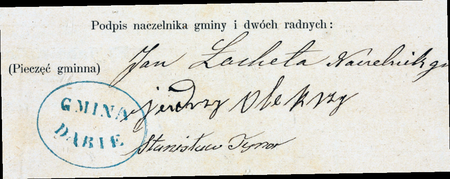 Podpis naczelnika gminy i dwóch radnych:
Jan Locheta Naczelnik gm
(Pieczęć gminna)
GMINA
DABIE
Jendrzy Olekszy
Stanisław Tyno